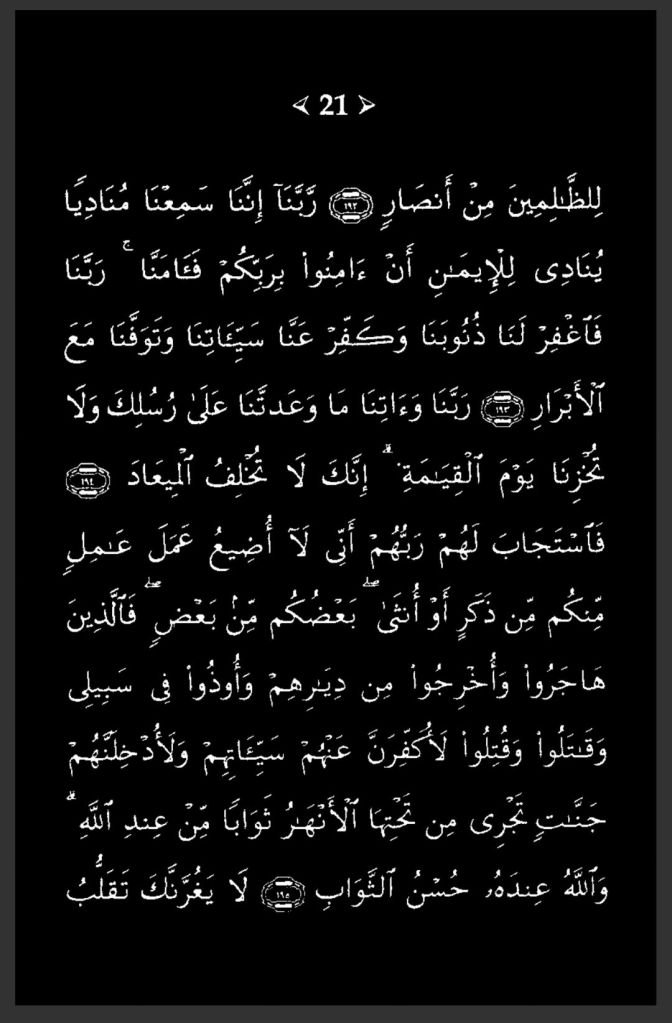 21
لِلظَّـٰلِمِينَ مِنْ أَنصَارٍ ١٩٢ رَّبَّنَآ إِنَّنَا سَمِعْنَا مُنَادِيًا
يُنَادِى لِلْإِيمَـٰنِ أَنْ ءَامِنُوا۟ بِرَبِّكُمْ فَـَٔامَنَّا ۚ رَبَّنَا
فَٱغْفِرْ لَنَا ذُنُوبَنَا وَكَفِّرْ عَنَّا سَيِّـَٔاتِنَا وَتَوَفَّنَا مَعَ
ٱلْأَبْرَارِ ١٩٣ رَبَّنَا وَءَاتِنَا مَا وَعَدتَّنَا عَلَىٰ رُسُلِكَ وَلَا
تُخْزِنَا يَوْمَ ٱلْقِيَـٰمَةِ ۗ إِنَّكَ لَا تُخْلِفُ ٱلْمِيعَادَ ١٩٤
فَٱسْتَجَابَ لَهُمْ رَبُّهُمْ أَنِّى لَآ أُضِيعُ عَمَلَ عَـٰمِلٍ
مِّنكُم مِّن ذَكَرٍ أَوْ أُنثَىٰ ۖ بَعْضُكُم مِّنۢ بَعْضٍ ۖ فَٱلَّذِينَ
هَاجَرُوا۟ وَأُخْرِجُوا۟ مِن دِيَـٰرِهِمْ وَأُوذُوا۟ فِى سَبِيلِى
وَقَـٰتَلُوا۟ وَقُتِلُوا۟ لَأُكَفِّرَنَّ عَنْهُمْ سَيِّـَٔاتِهِمْ وَلَأُدْخِلَنَّهُمْ
جَنَّـٰتٍ تَجْرِى مِن تَحْتِهَا ٱلْأَنْهَـٰرُ ثَوَابًا مِّنْ عِندِ ٱللَّهِ ۗ
وَٱللَّهُ عِندَهُۥ حُسْنُ ٱلثَّوَابِ ١٩٥ لَا يَغُرَّنَّكَ تَقَلُّبُ